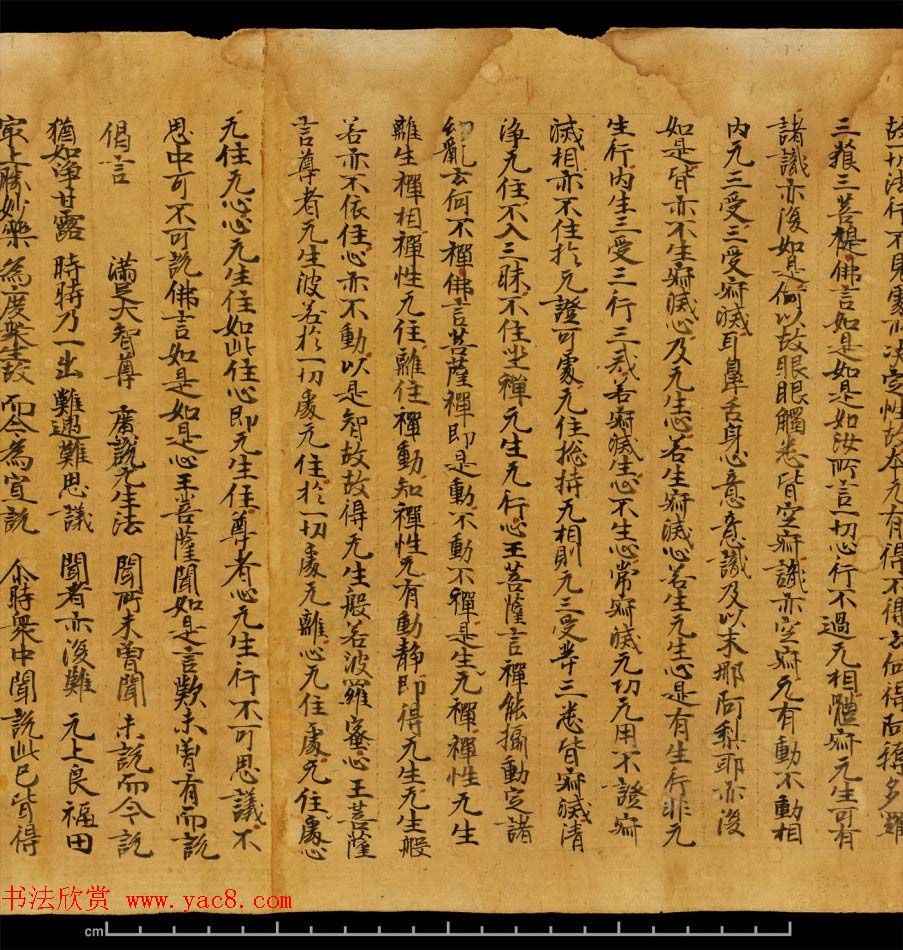 故一切法行不見處所決定性故本无有得不得云何得阿耨多羅
三藐三菩提佛言如是如是如汝所言一切心行不過无相體寂无生可有
諸識亦復如是何以故眼眼觸悉皆空寂識亦空寂无有動不動相
內无三受三受寂滅耳鼻舌身心意意識及以末那阿梨耶亦復
如是皆亦不生寂滅心及无生心若生寂滅心若生无生心是有生行非无
生行內生三受三行三戒若寂滅生心不生心常寂滅无功无用不證寂
滅相亦不住於无證可處无住惣持无相則无三受等三悉皆寂滅清
淨无住不入三昧不住坐禪无生无行心王菩薩言禪能攝動定諸
幻亂云何不禪佛言菩薩禪即是動不動不禪是生无禪禪性无生
離生禪相禪性无住離住禪動知禪性无有動靜即得无生无生般
若亦不依住心亦不動以是智故故得无生般若波羅蜜心王菩薩
言尊者无生波若於一切處无住於一切處无離心无住處无住處心
无住无心心无生住如此住心即无生住尊者心无生行不可思議不
思中可不可說佛言如是如是心王菩薩聞如是言歎未曾有而說
偈言 滿足大智尊 廣說无生法 聞所未曾聞 未說而今說
猶如淨甘露 時時乃一出 難遇難思議 聞者亦復難 无上良福田
最上勝妙藥 為度眾生故 而今為宣說 尒時眾中聞說此已皆得
书法欣赏 www.yac8.com
cm